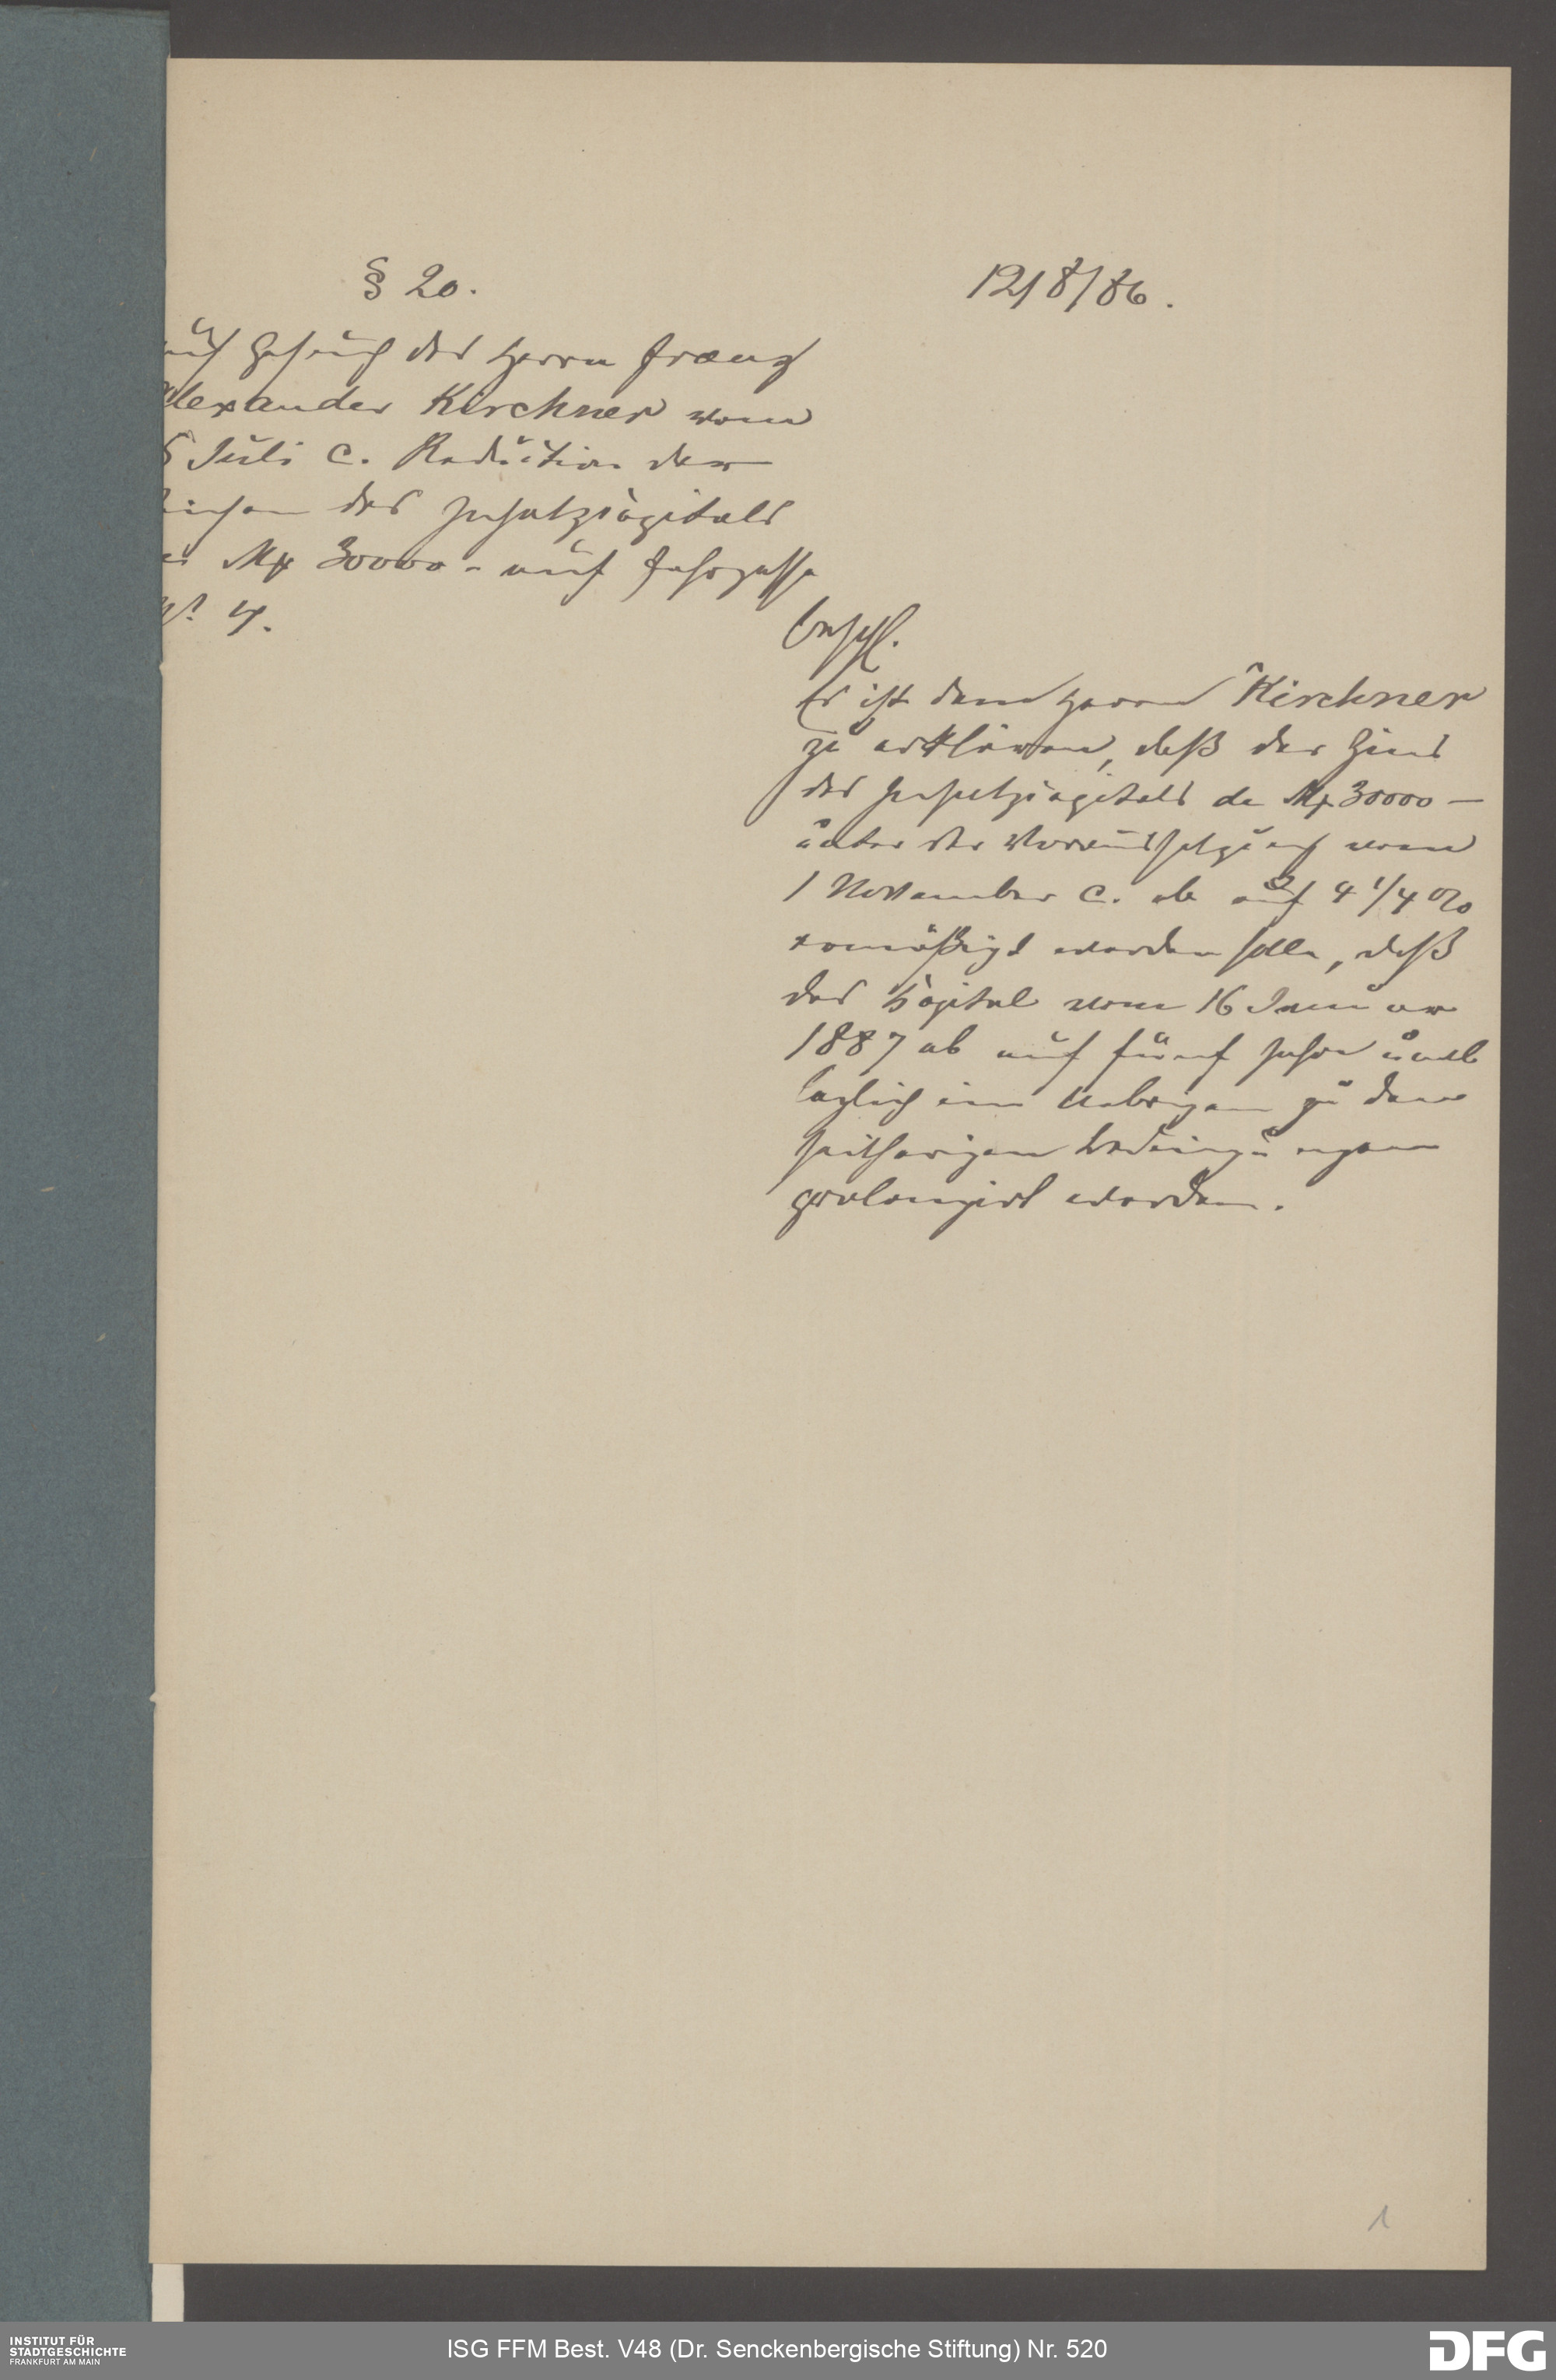 § 20.
12/8/86.
auf Gesuch des Herrn Franz
Alexander Kirchner vom
Juli c. Reduction der
Zinsen des Insatzkapitals
de Mk 30000 - auf Fahrgasse
No 4.
Beschl.
Es ist dem Herrn Kirchner
zu erklären, daß der Zins
des Insatzkapitals de Mk 30000 —
unter der Voraussetzung vom
1 November c. ab auf 4 1/4 %
ermäßigt werden solle, daß
das Kapital vom 16 Januar
1887 ab auf fünf Jahre
im Uebrigen zu den
seitherigen Bedingungen
prolongirt werden.
1
INSTITUT FÜR
STADTGESCHICHTE
FRANKFURT AM MAIN
ISG FFM Best. V48 (Dr. Senckenbergische Stiftung) Nr. 520
DFG